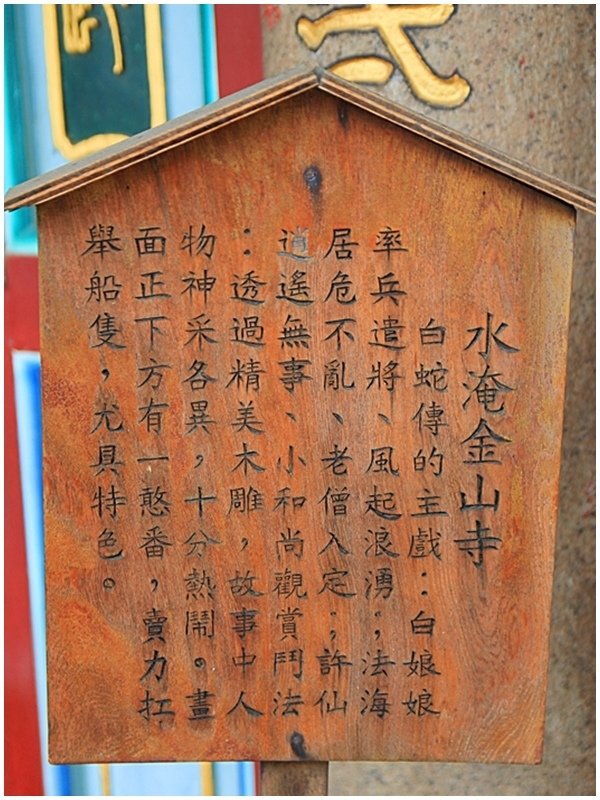 水淹金山寺
白蛇傳的主戲：白娘娘
率兵遣將、風起浪湧；法海
居危不亂、老僧入定；許仙
逍遙無事、小和尚觀賞鬥法
：透過精美木雕，故事中人
物神采各異，十分熱鬧。畫
面正下方有一憨番，賣力扛
舉船隻，尤具特色。